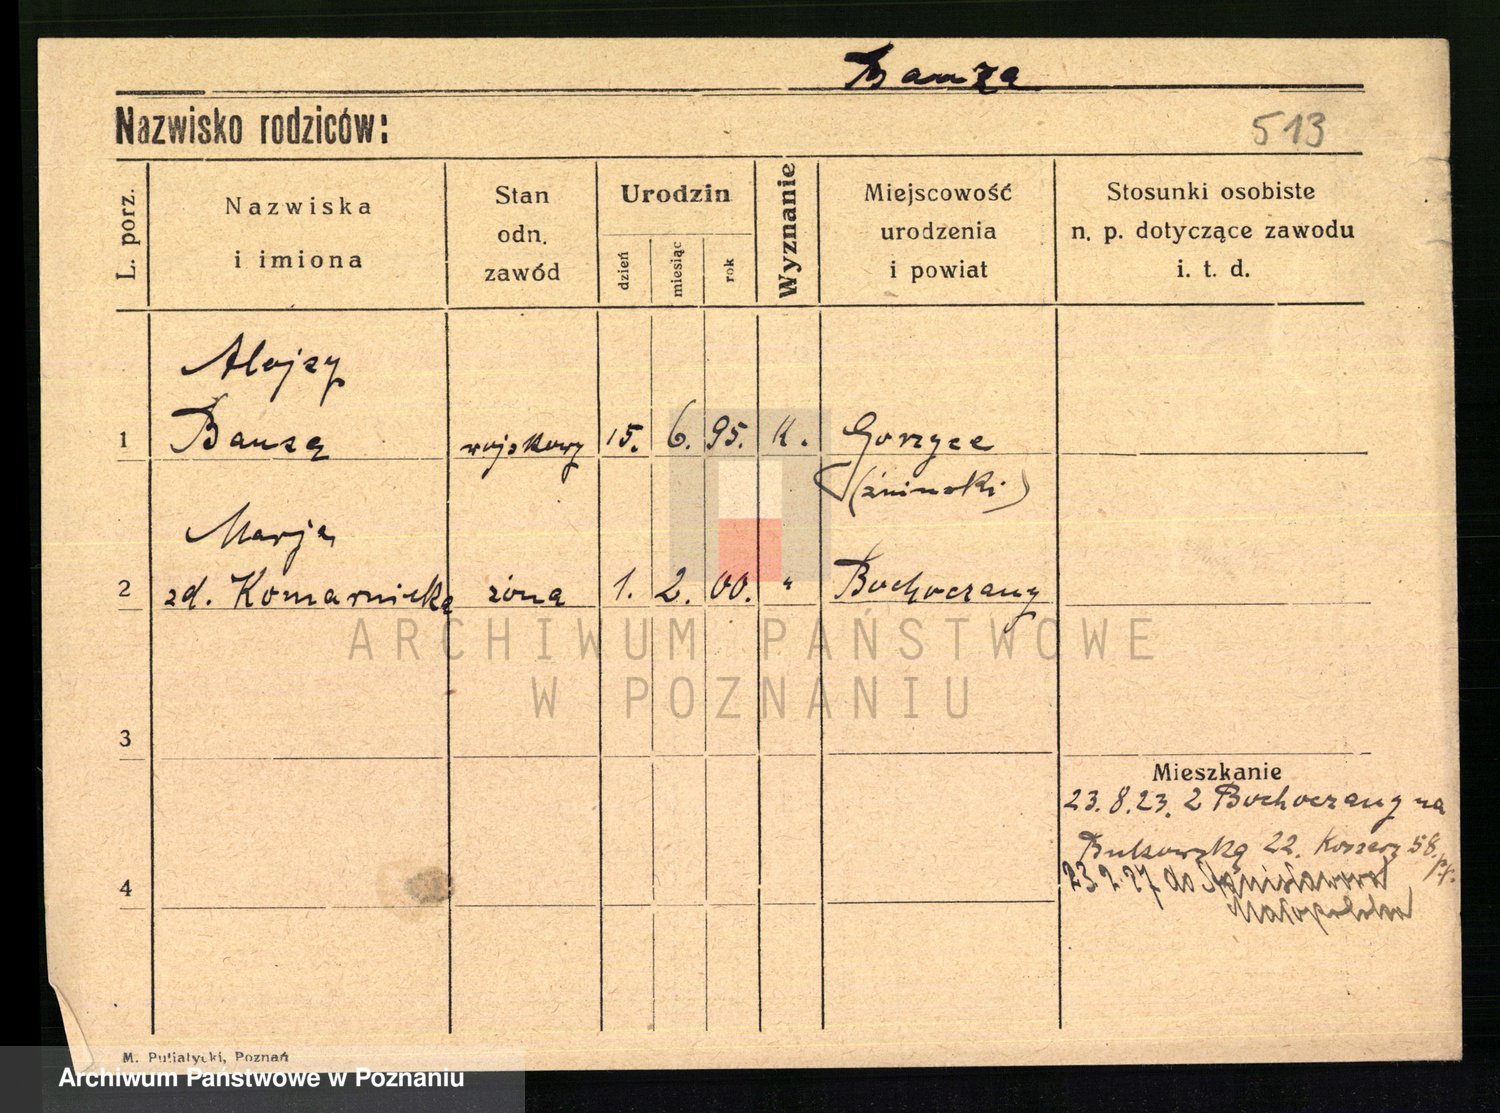 Bauza
Nazwisko rodziców:
513
L. porz.
Nazwiska
i imiona
Stan
odn.
zawód
Urodzin
dzień
miesiąc
rok
Wyznanie
Miejscowość
urodzenia
i powiat
Stosunki osobiste
n. p. dotyczące zawodu
i. t. d.
Alojzy
1 Bauza wojskowy 15. 6. 95. K. Gorzyce
(żniński)
Marja
2 zd. Komarnicka żona 1. 2. 00. " Bochoczany
ARCHIWUM PAŃSTWOWE
W POZNANIU
3
Mieszkanie
23.8.23. z Bochoczany na
Bukowską 22. Koszary 58. p.
4
23.2.27 do Stanisławowa
Małopolska
M. Putiatycki, Poznań
Archiwum Państwowe w Poznaniu